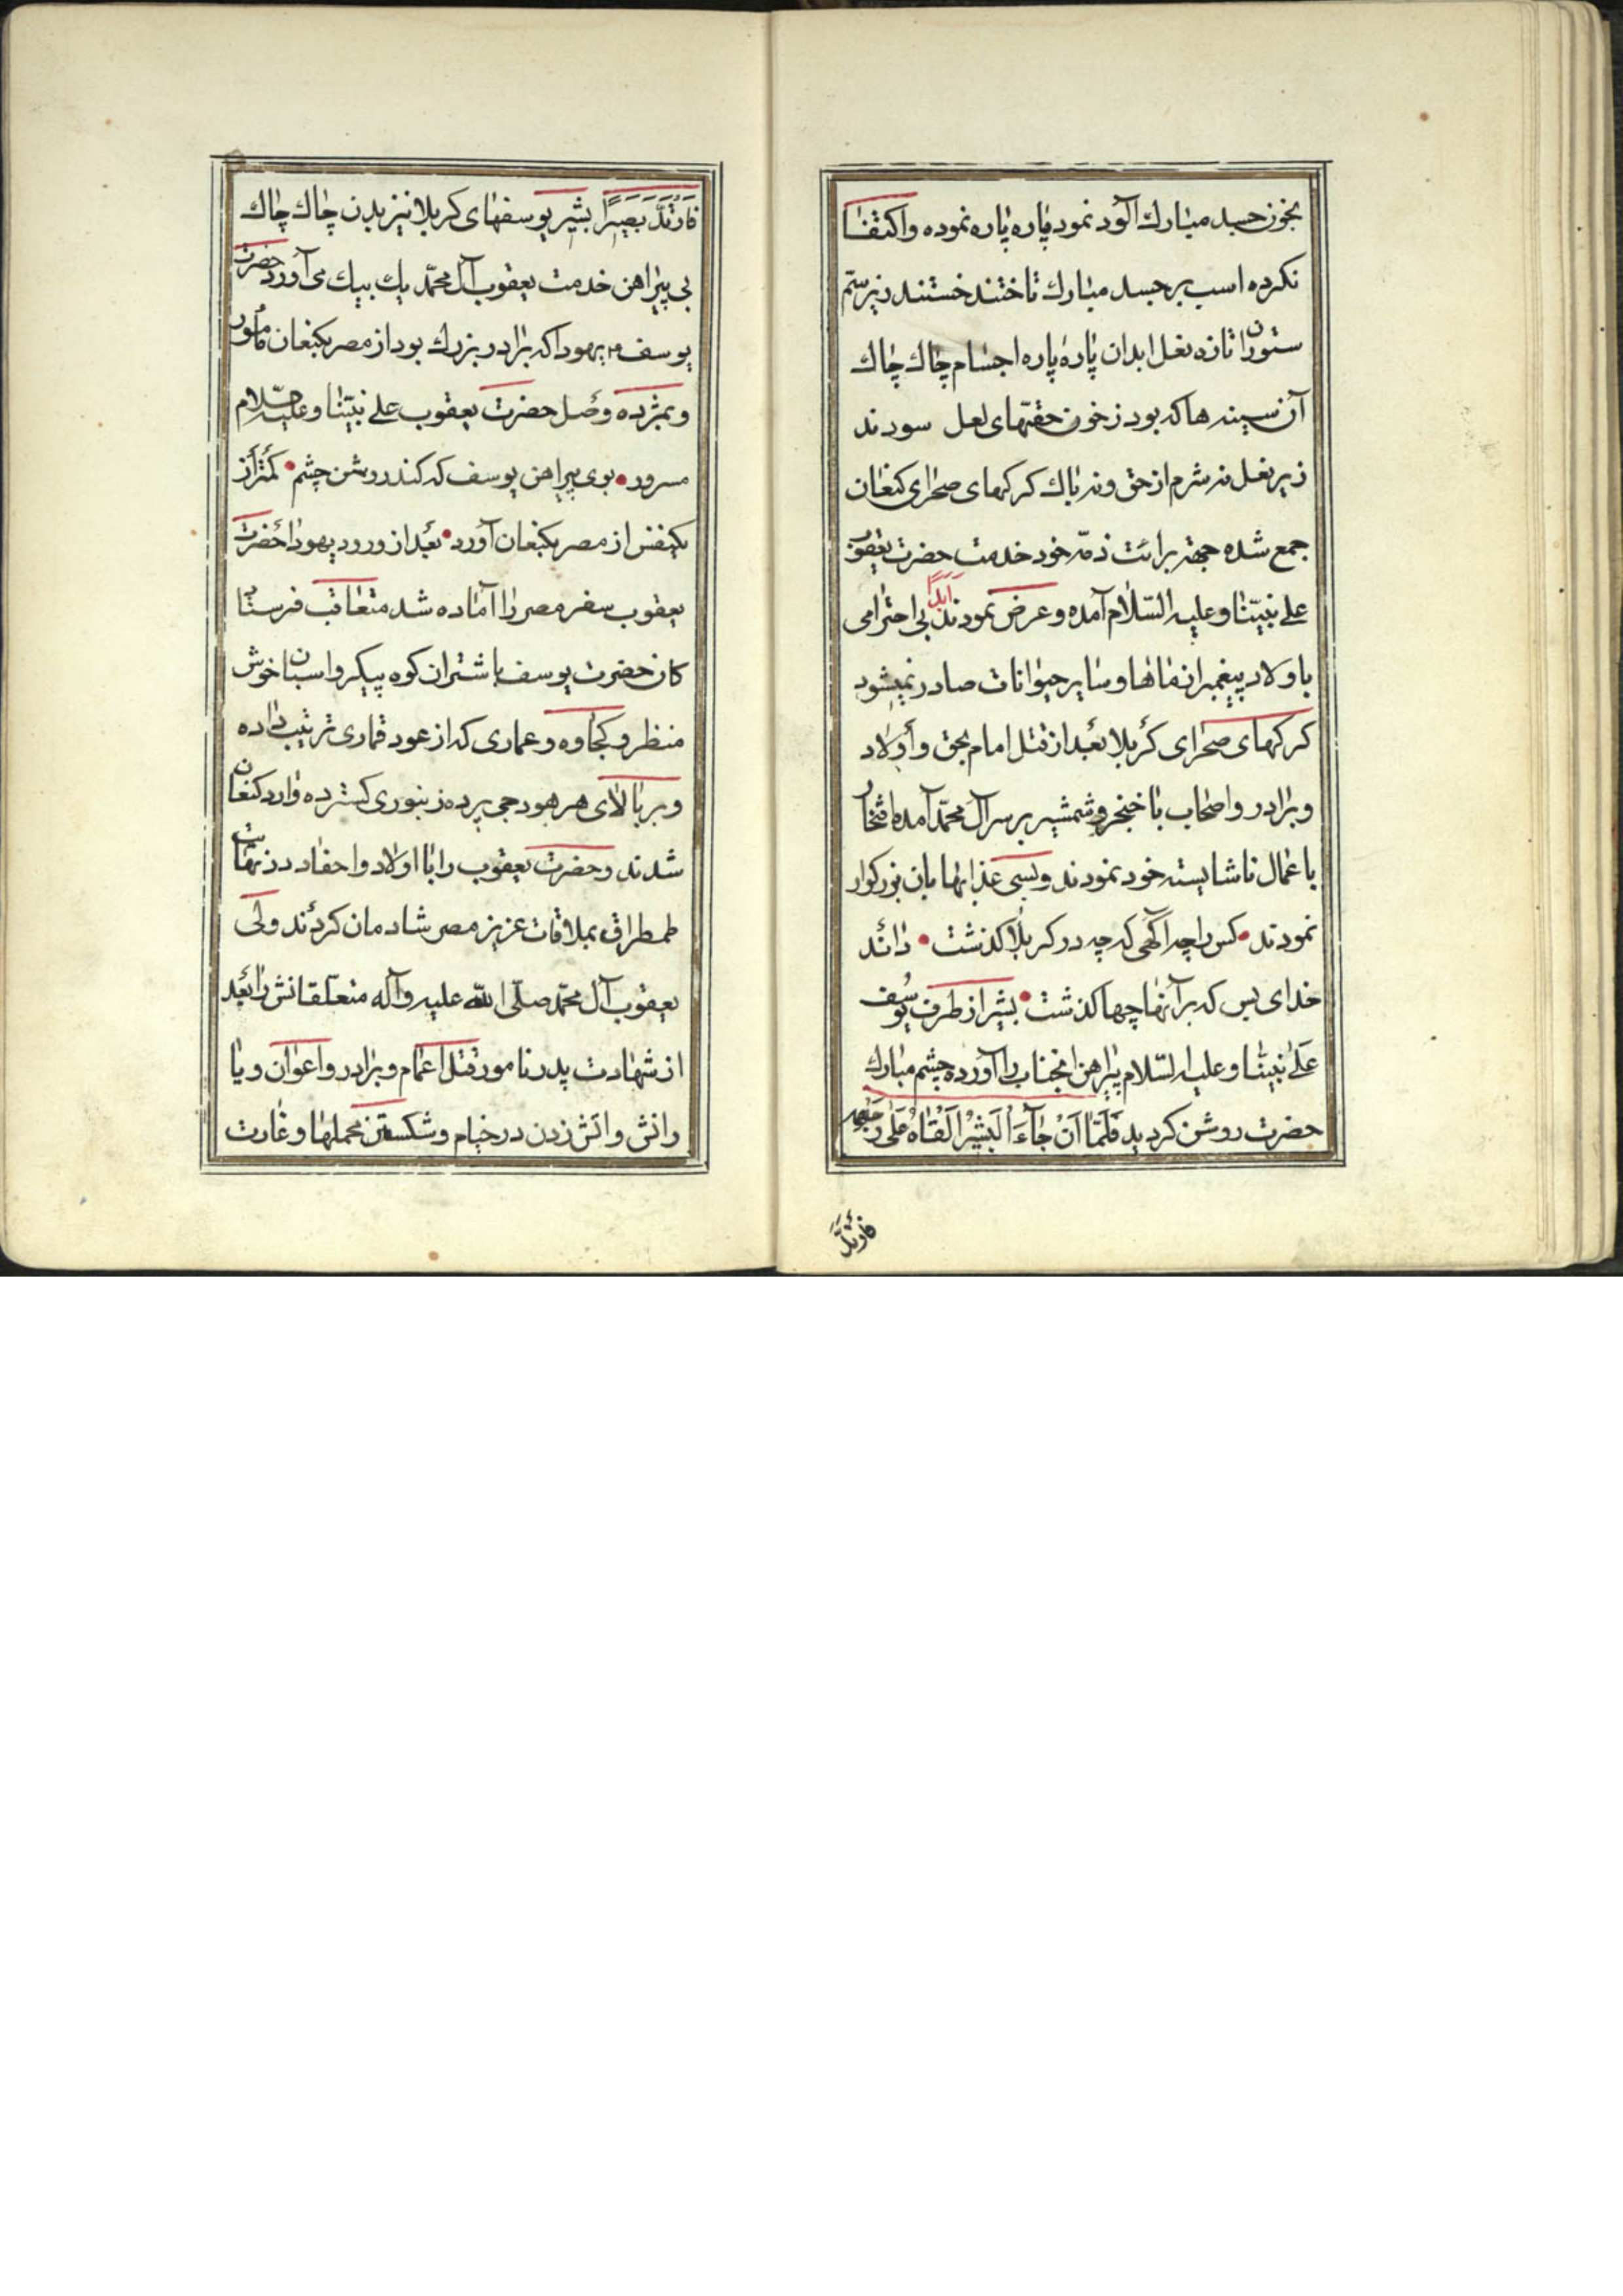 بخون جسد مبارك آلود نمود پاره پاره نموده واکتفا
نکرده اسب بر جسد مبارك تاختند خستند زیر سمّ
ستوران تازه نعل ابدان پاره پاره اجسام چاك چاك
آن سینه ها که بود ز خون حقتهای لعل سودند
زیر نعل نه شرم از حق و نه باك کرکهای صحرای کنعان
جمع شده جهته برائت ذمّه خود خدمت حضرت یعقوب
علی نبیّنا و علیه السّلام آمده و عرض نمودند ابدًا بی احترامی
باولاد پیغمبران ماها و سایر حیوانات صادر نمیشود
کرکهای صحرای کربلا بعد از قتل امام بحق و أولاد
و برادر و اصحاب با خنجر و شمشیر بر سر آل محمّد آمده افتخار
باعمال ناشایسته خود نمودند و بسی عذابها بان بزرکوار
نمودند • کس را چه آکهی که چه در کربلا کذشت • داند
خدای بس که بر آنها چها کذشت • بشیر از طرف یوسف
عَلی نبیّنا و علیه السّلام پیراهن انجناب را آورده چشم مبارك
حضرت روشن کردید فَلَمّا اَنْ جٰآءَ الْبَشیٖرُ اَلْقٰاهُ عَلیٰ وَجْهِهِ
فَارْتَدَّ
فَارْتَدَّ بَصیٖرًا بشیر یوسفهای کربلا نیز بدن چاك چاك
بی پیراهن خدمت یعقوب آل محمّد یك بیك می آورد حضرت
یوسف ۴ یهودا که برادر بزرك بود از مصر بکنعان مأمور
و بمژده وصل حضرت یعقوب علی نبیّنا و علیه السّلام
مسرور • بوی پیراهن یوسف که کند روشن چشم • کمتر از
یکنفس از مصر بکنعان آورد • بعد از ورود یهودا حضرت
یعقوب سفر مصر را آماده شد متعاقب فرستا
کان حضرت یوسف با شتران کوه پیکر و اسبان خوش
منظر و کجاوه و عماری که از عود قماری ترتیب داده
و بر بالای هر هودجی پرده زنبوری کسترده وارد کنعان
شدند و حضرت یعقوب را با اولاد و احفاد در نهایت
طمطراق بملاقات عزیز مصر شادمان کردند ولی
یعقوب آل محمّد صلّی الله علیه وآله متعلّقانش را بعد
از شهادت پدر نامور قتل اعمام و برادر و اعوان و یا
رانش و اتش زدن در خیام و شکستن محملها و غارت